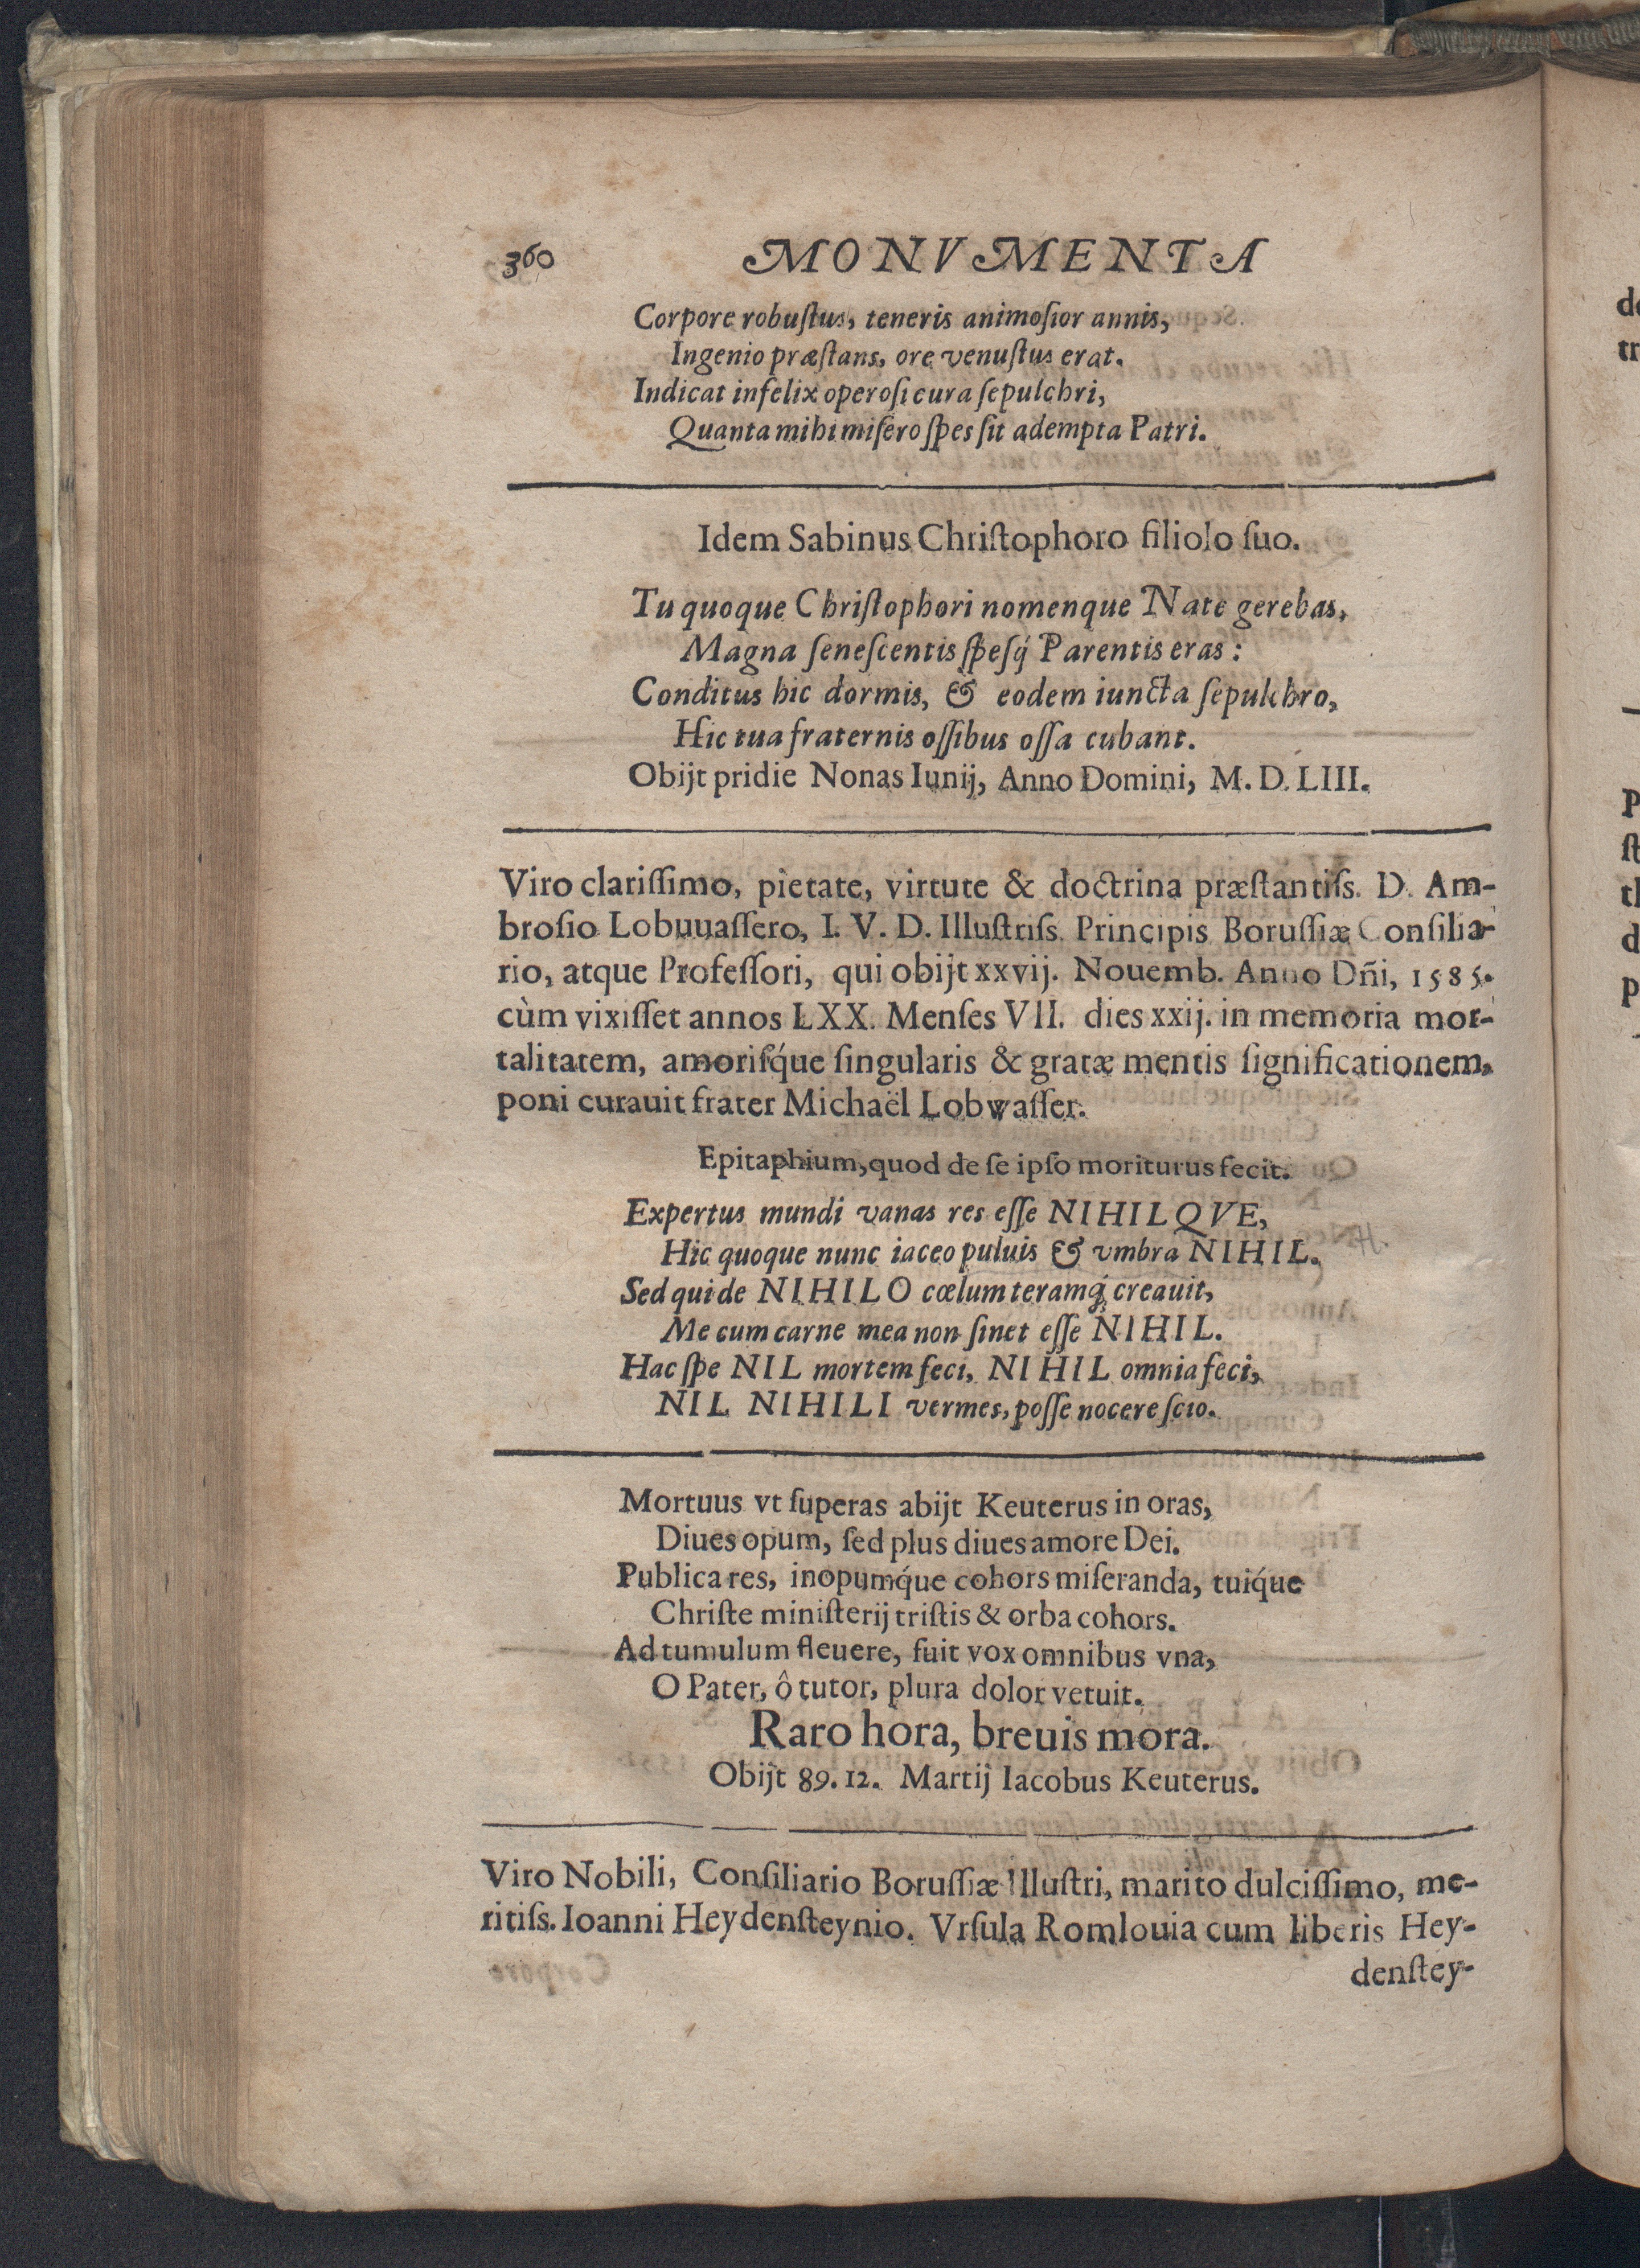 360 MONVMENTA
Corpore robuſtus, teneris animoſior annis,
Ingenio præſtans, ore venuſtus erat.
Indicat infelix operoſi cura ſepulchri,
Quanta mihi miſero ſpes ſit adempta Patri.
Idem Sabinus Chriſtophoro filiolo ſuo.
Tu quoque Chriſtophori nomenque Nate gerebas,
Magna ſeneſcentis ſpeſq́ Parentis eras:
Conditus hic dormis, & eodem iuncta ſepulchro,
Hic tua fraternis oſſibus oſſa cubant.
Obijt pridie Nonas Iunij, Anno Domini, M. D. LIII.
Viro clariſſimo, pietate, virtute & doctrina præſtantiſs. D. Am-
broſio Lobuuaſſero, I. V. D. Illuſtriſs. Principis Boruſſiæ Conſilia-
rio, atque Profeſſori, qui obijt xxvij. Nouemb. Anno Dñi, 1585.
cùm vixiſſet annos LXX. Menſes VII. dies xxij. in memoria mor-
talitatem, amoriſq́ue ſingularis & gratæ mentis ſignificationem,
poni curauit frater Michaël Lobwaſſer.
Epitaphium, quod de ſe ipſo moriturus fecit.
Expertus mundi vanas res eſſe NIHILQVE,
Hic quoque nunc iaceo puluis & vmbra NIHIL.
Sed qui de NIHILO cœlum teramq́ creauit,
Me cum carne mea non ſinet eſſe NIHIL.
Hac ſpe NIL mortem feci, NIHIL omnia feci,
NIL NIHILI vermes, poſſe nocere ſcio.
Mortuus vt ſuperas abijt Keuterus in oras,
Diues opum, ſed plus diues amore Dei.
Publica res, inopumq́ue cohors miſeranda, tuiq́ue
Chriſte miniſterij triſtis & orba cohors.
Ad tumulum fleuere, fuit vox omnibus vna,
O Pater, ô tutor, plura dolor vetuit.
Raro hora, breuis mora.
Obijt 89. 12. Martij Iacobus Keuterus.
Viro Nobili, Conſiliario Boruſſiæ Illuſtri, marito dulciſſimo, me-
ritiſs. Ioanni Heydenſteynio. Vrſula Romlouia cum liberis Hey-
denſtey-